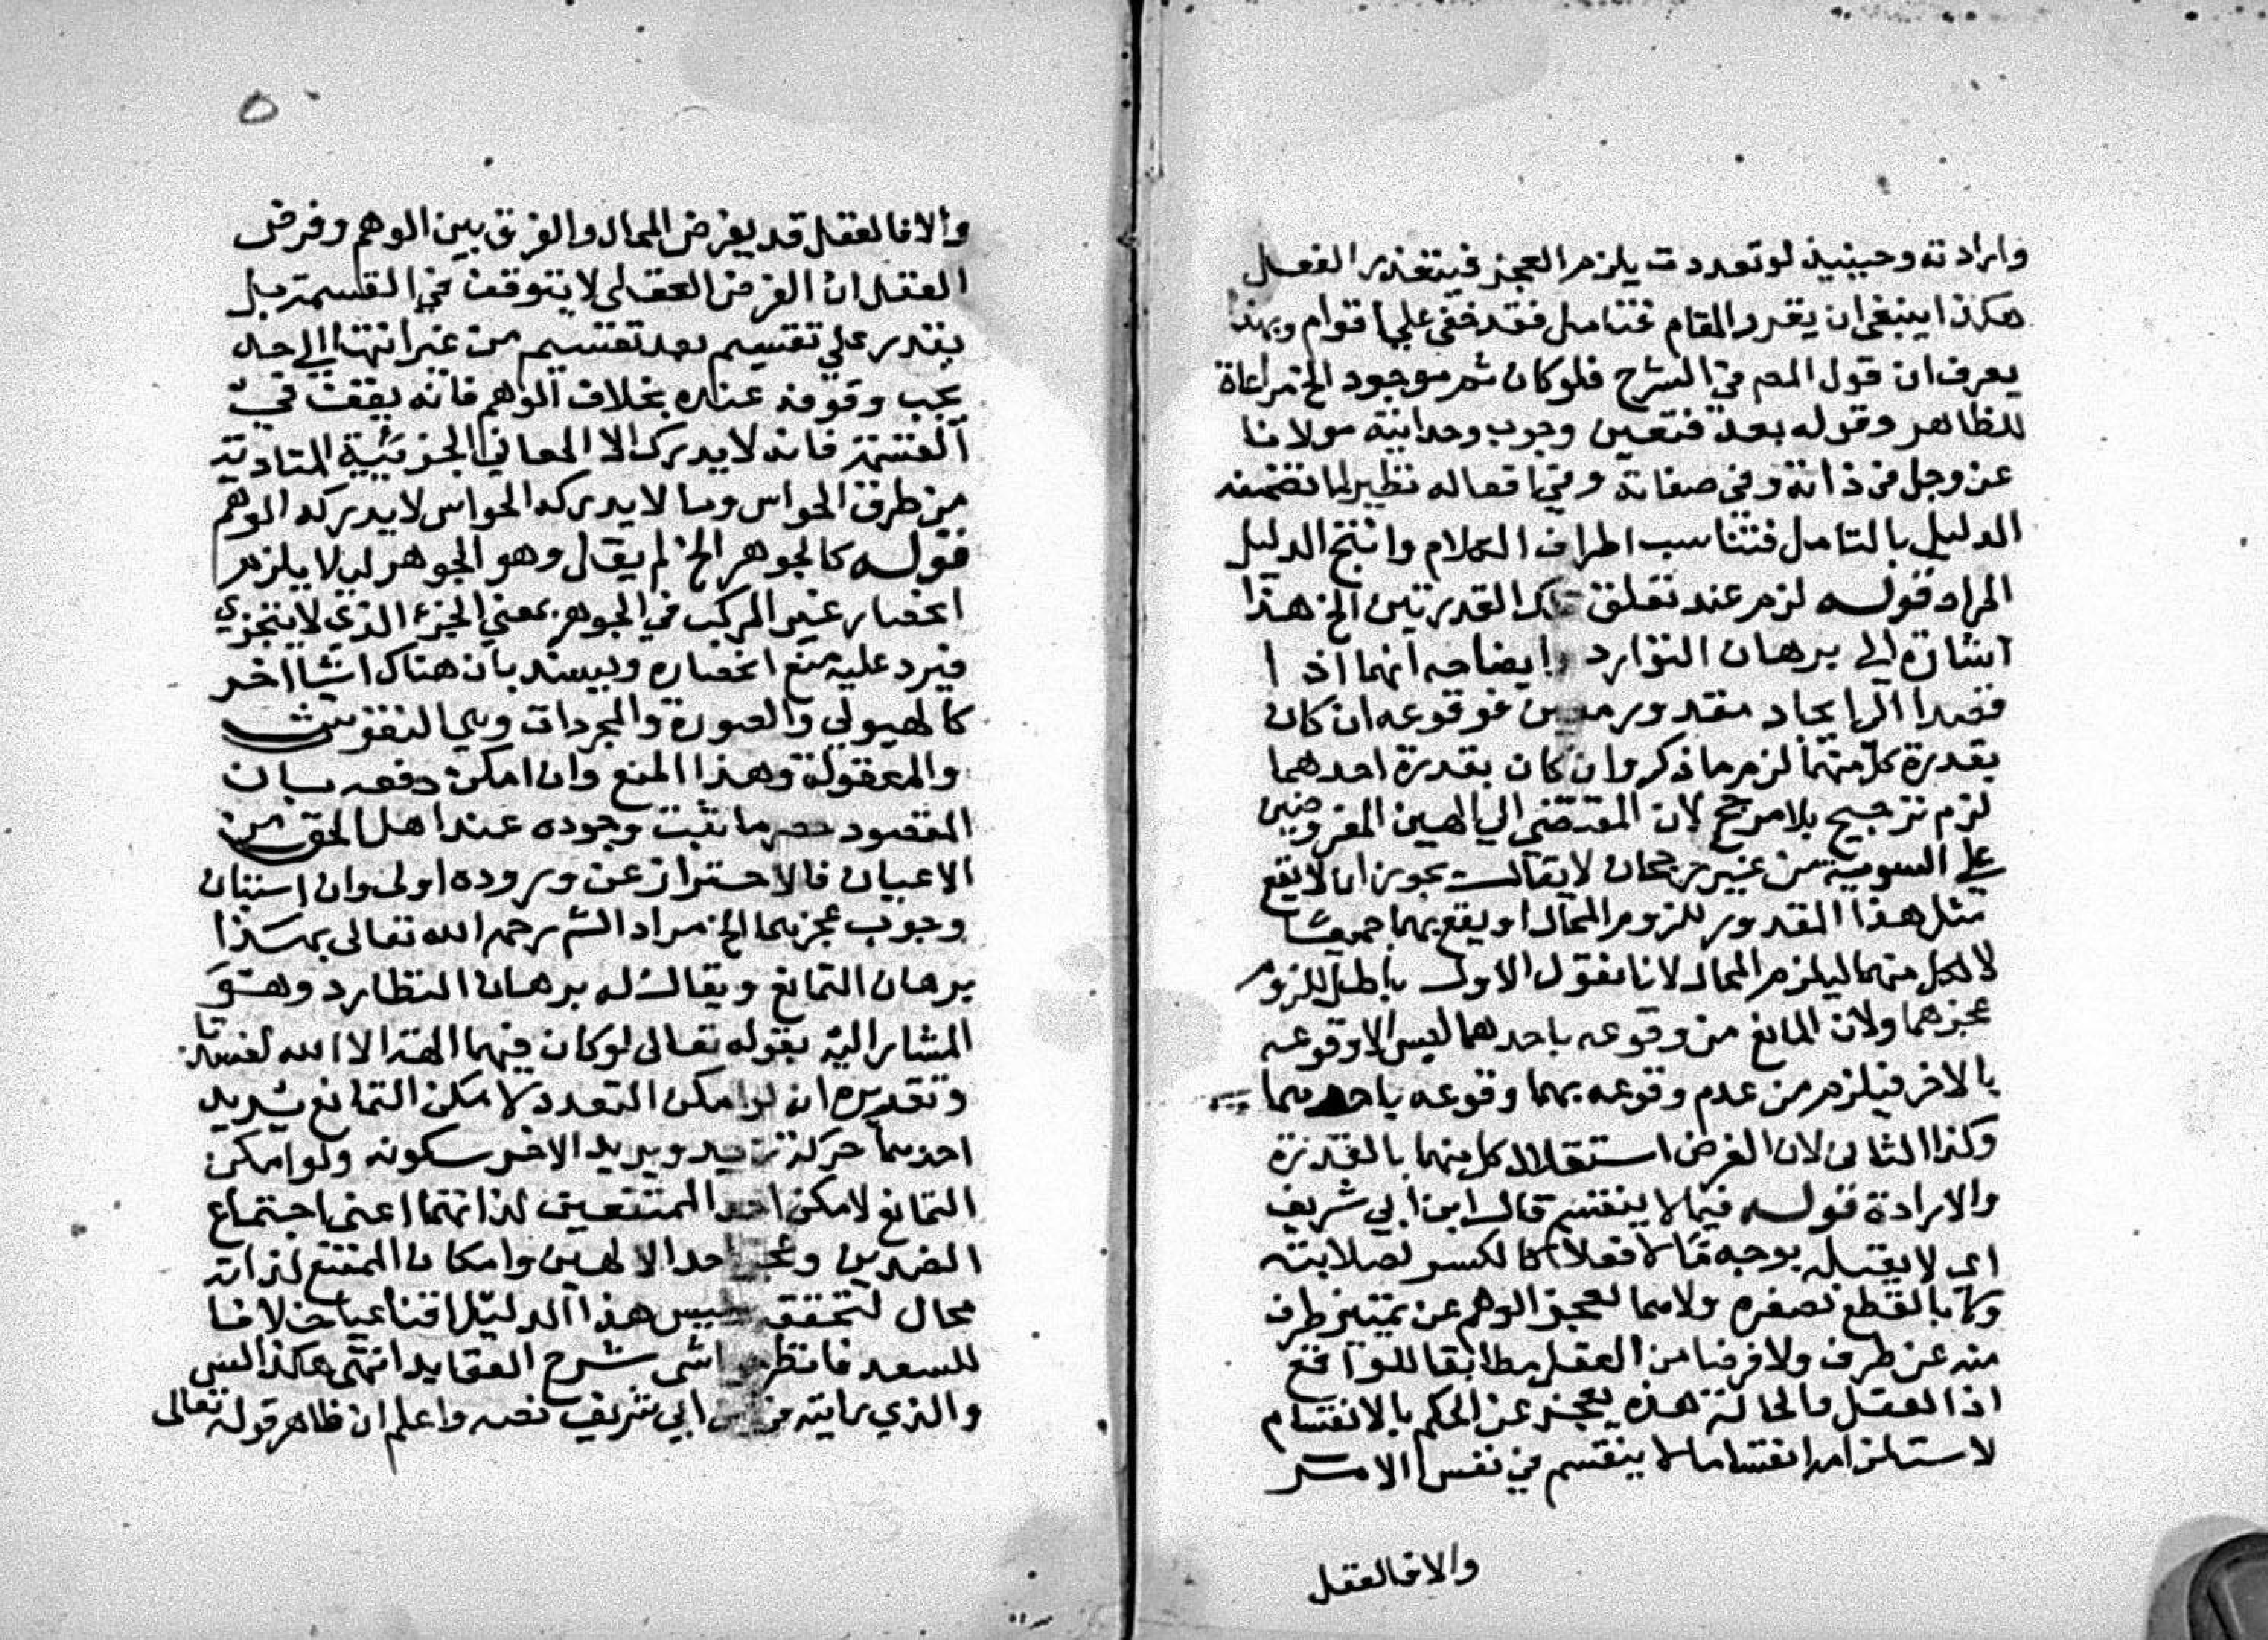 وارادته وحينيذ لو تعددت يلزم العجز فيتعذر الفعل
هكذا ينبغي ان يقرر المقام فتامل فقد خفي علي اقوام وبهذا
يعرف ان قول المص في الشرح فلو كان ثم موجود الخ مراعاة
للظاهر وقوله بعد فتعين وجوب وحدانية مولانا
عز وجل في ذاته وفي صفاته وفي افعاله نظير لما تضمنه
الدليل بالتامل فتناسب اطراف الكلام وانتج الدليل
المراد قوله لزم عند تعلق تلك القدرتين الخ هذا
اشارة الي برهان التوارد وايضاحه انهما اذا
قصدا الي ايجاد مقدور معين فوقوعه ان كان
بقدرة كل منهما لزم ما ذكر وان كان بقدرة احدهما
لزم ترجيح بلا مرجح لان المقتضي الي الهين المفروضين
علي السوية من غير رجحان لا يقال يجوز ان لا يقع
مثل هذا المقدور للزوم المحال او يقع بهما جميعا
لا لكل منهما ليلزم المحال لانا نقول الاول باطل للزوم
عجزهما ولان المانع من وقوعه باحدهما ليس الا وقوعه
بالاخر فيلزم من عدم وقوعه بهما وقوعه باحدهما
وكذا الثاني لان الفرض استقلال كل منهما بالقدرة
والارادة قوله فيما لا ينقسم قال ابن ابي شريف
اي لا يقبله بوجه ما لا فعلا كا لكسر لصلابته
وكا بالقطع لصغره ولا وهما لعجز الوهم عن تمييز طرف
منه عن طرف ولا فرضا من العقل مطابقا للواقع
اذ العقل والحالة هذه يعجز عن الحكم بالانقسام
لاستلزامه انقسام ما لا ينقسم في نفس الامر
والا فالعقل
٥
والا فالعقل قد يفرض المحال والفرق بين الوهم وفرض
العقل ان الفرض العقلي لا يتوقف في القسمة بل
يقدر علي تقسيم بعد تقسيم من غير انتها الي حد
يجب وقوفه عنده بخلاف الوهم فانه يقف في
القسمة فانه لا يدرك الا المعاني الجزئية المتادية
من طرف الحواس وما لا يدركه الحواس لا يدركه الوهم
قوله كالجوهر الخ لم يقل وهو الجوهر ليلا يلزم
انحصار غير المركب في الجوهر بمعني الجزء الذي لا يتجزي
فيرد عليه منع انحصاره ويسند بان هناك اشيا اخر
كالهيولي والصورة والمجردات وهي النفوس
والمعقولة وهذا المنع وان امكن دفعه بان
المقصود حصر ما ثبت وجوده عند اهل الحق من
الاعيان فالاحتراز عن وروده اولي وان استبان
وجوب عجزهما الخ مراد الش رحمه الله تعالى بهذا
برهان التمانع ويقال له برهان التطارد وهو
المشار اليه بقوله تعالى لو كان فيهما الهة الا الله لفسدتا
وتقديره انه لو امكن التعدد لامكن التمانع يريد
احدهما حركة زيد ويريد الاخر سكونه ولو امكن
التمانع لامكن احد الممتنعين لذاتهما اعني اجتماع
الضدين وعجز احد الالهين وامكان الممتنع لذاته
محال لتحقق وليس هذا الدليل اقناعيا خلافا
للسعد فانظر حواشي شرح العقايد انتهى هكذا
والذي رايته في ابن ابي شريف نصه واعلم ان ظاهر قوله تعالى